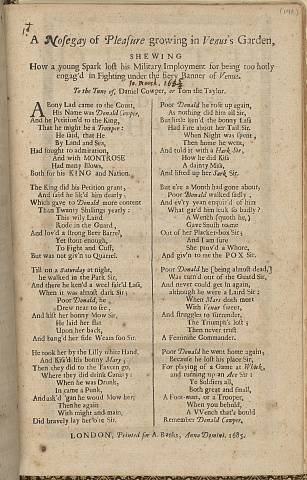 A Nosegay of Pleasure growing in Venus's Garden,
SHEWING
How a young Spark lost his Military Imployment for being too hotly
engag'd in Fighting under the fiery Banner of Venus.
To the Tune of, Daniel Cowper, or Tom the Taylor.
A Bony Lad came to the Court,
His Name was Donald Cowper,
And he Petition'd to the King,
That he might be a Trooper:
He said, that He
By Land and Sea,
Had fought to admiration,
And with MONTROSE
Had many Blows,
Both for his KING and Nation.
The King did his Petition grant,
And said he lik'd him dearly:
Which gave to Donald more content
Than Twenty Shilings yearly:
This wily Laird
Rode in the Guard,
And lov'd a strong Beer Barrel,
Yet stout enough,
To Fight and Cuff,
But was not giv'n to Quarrel.
Till on a Saturday at night,
he walked in the Park Sir,
And there he ken'd a weel fair'd Lass,
When it was almost dark Sir;
Poor Donald, he
Drew near to see,
And kist her bonny Mow Sir,
He laid her flat
Upon her back,
And bang'd her side Weam soo Sir.
He took her by the Lilly white Hand,
And Kiss'd his bonny Mary;
Then they did to the Tavern go,
Where they did drink Canary:
When he was Drunk,
In came a Punk,
And ask'd 'gan he woud Mow her;
Then he again
With might and main,
Did bravely lay her o're Sir.
Poor Donald he rose up again,
As nothing did him ail Sir,
But little ken'd the bonny Lass
Had Fire about her Tail Sir.
When Night was spent,
Then home he went,
And told it with a Hark Sir,
How he did Kiss
A dainty Miss,
And lifted up her Sark Sir.
But e're a Month had gone about,
Poor Donald walked sadly;
And ev'ry yean enquir'd of him
What gar'd him leuk so badly?
A Wench (quoth he,)
Gave Snuff to me
Out of her Placket-box Sir;
And I am sure
She prov'd a Whore,
And giv'n to me the POX Sir.
Poor Donald he (being almost dead,)
Was turn'd out of the Guard Sir,
And never could get In again,
although he were a Laird Sir:
When Mars doth meet
With Venus sweet,
And struggles to surrender,
The Triumph's lost;
Then never trust
A Feminine Commander.
Poor Donald he went home again;
Because he lost his place Sir;
For playing of a Game at Whisk,
and turning up an Ace Sir:
Ye Soldiers all,
Both great and small,
A Foot-man, or a Trooper,
When you behold,
A VVench that's bould
Remember Donald Cowper,
LONDON, Printed for A. Banks, Anno Domini. 1683.